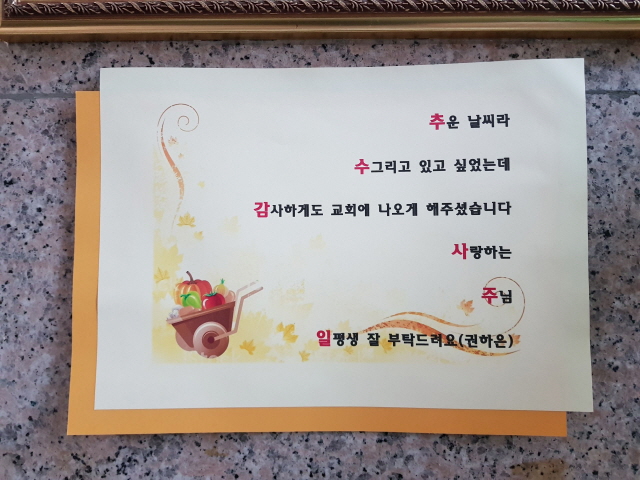 추운 날씨라
수그리고 있고 싶었는데
감사하게도 교회에 나오게 해주셨습니다
사랑하는
주님
일평생 잘 부탁드려요(권하은)